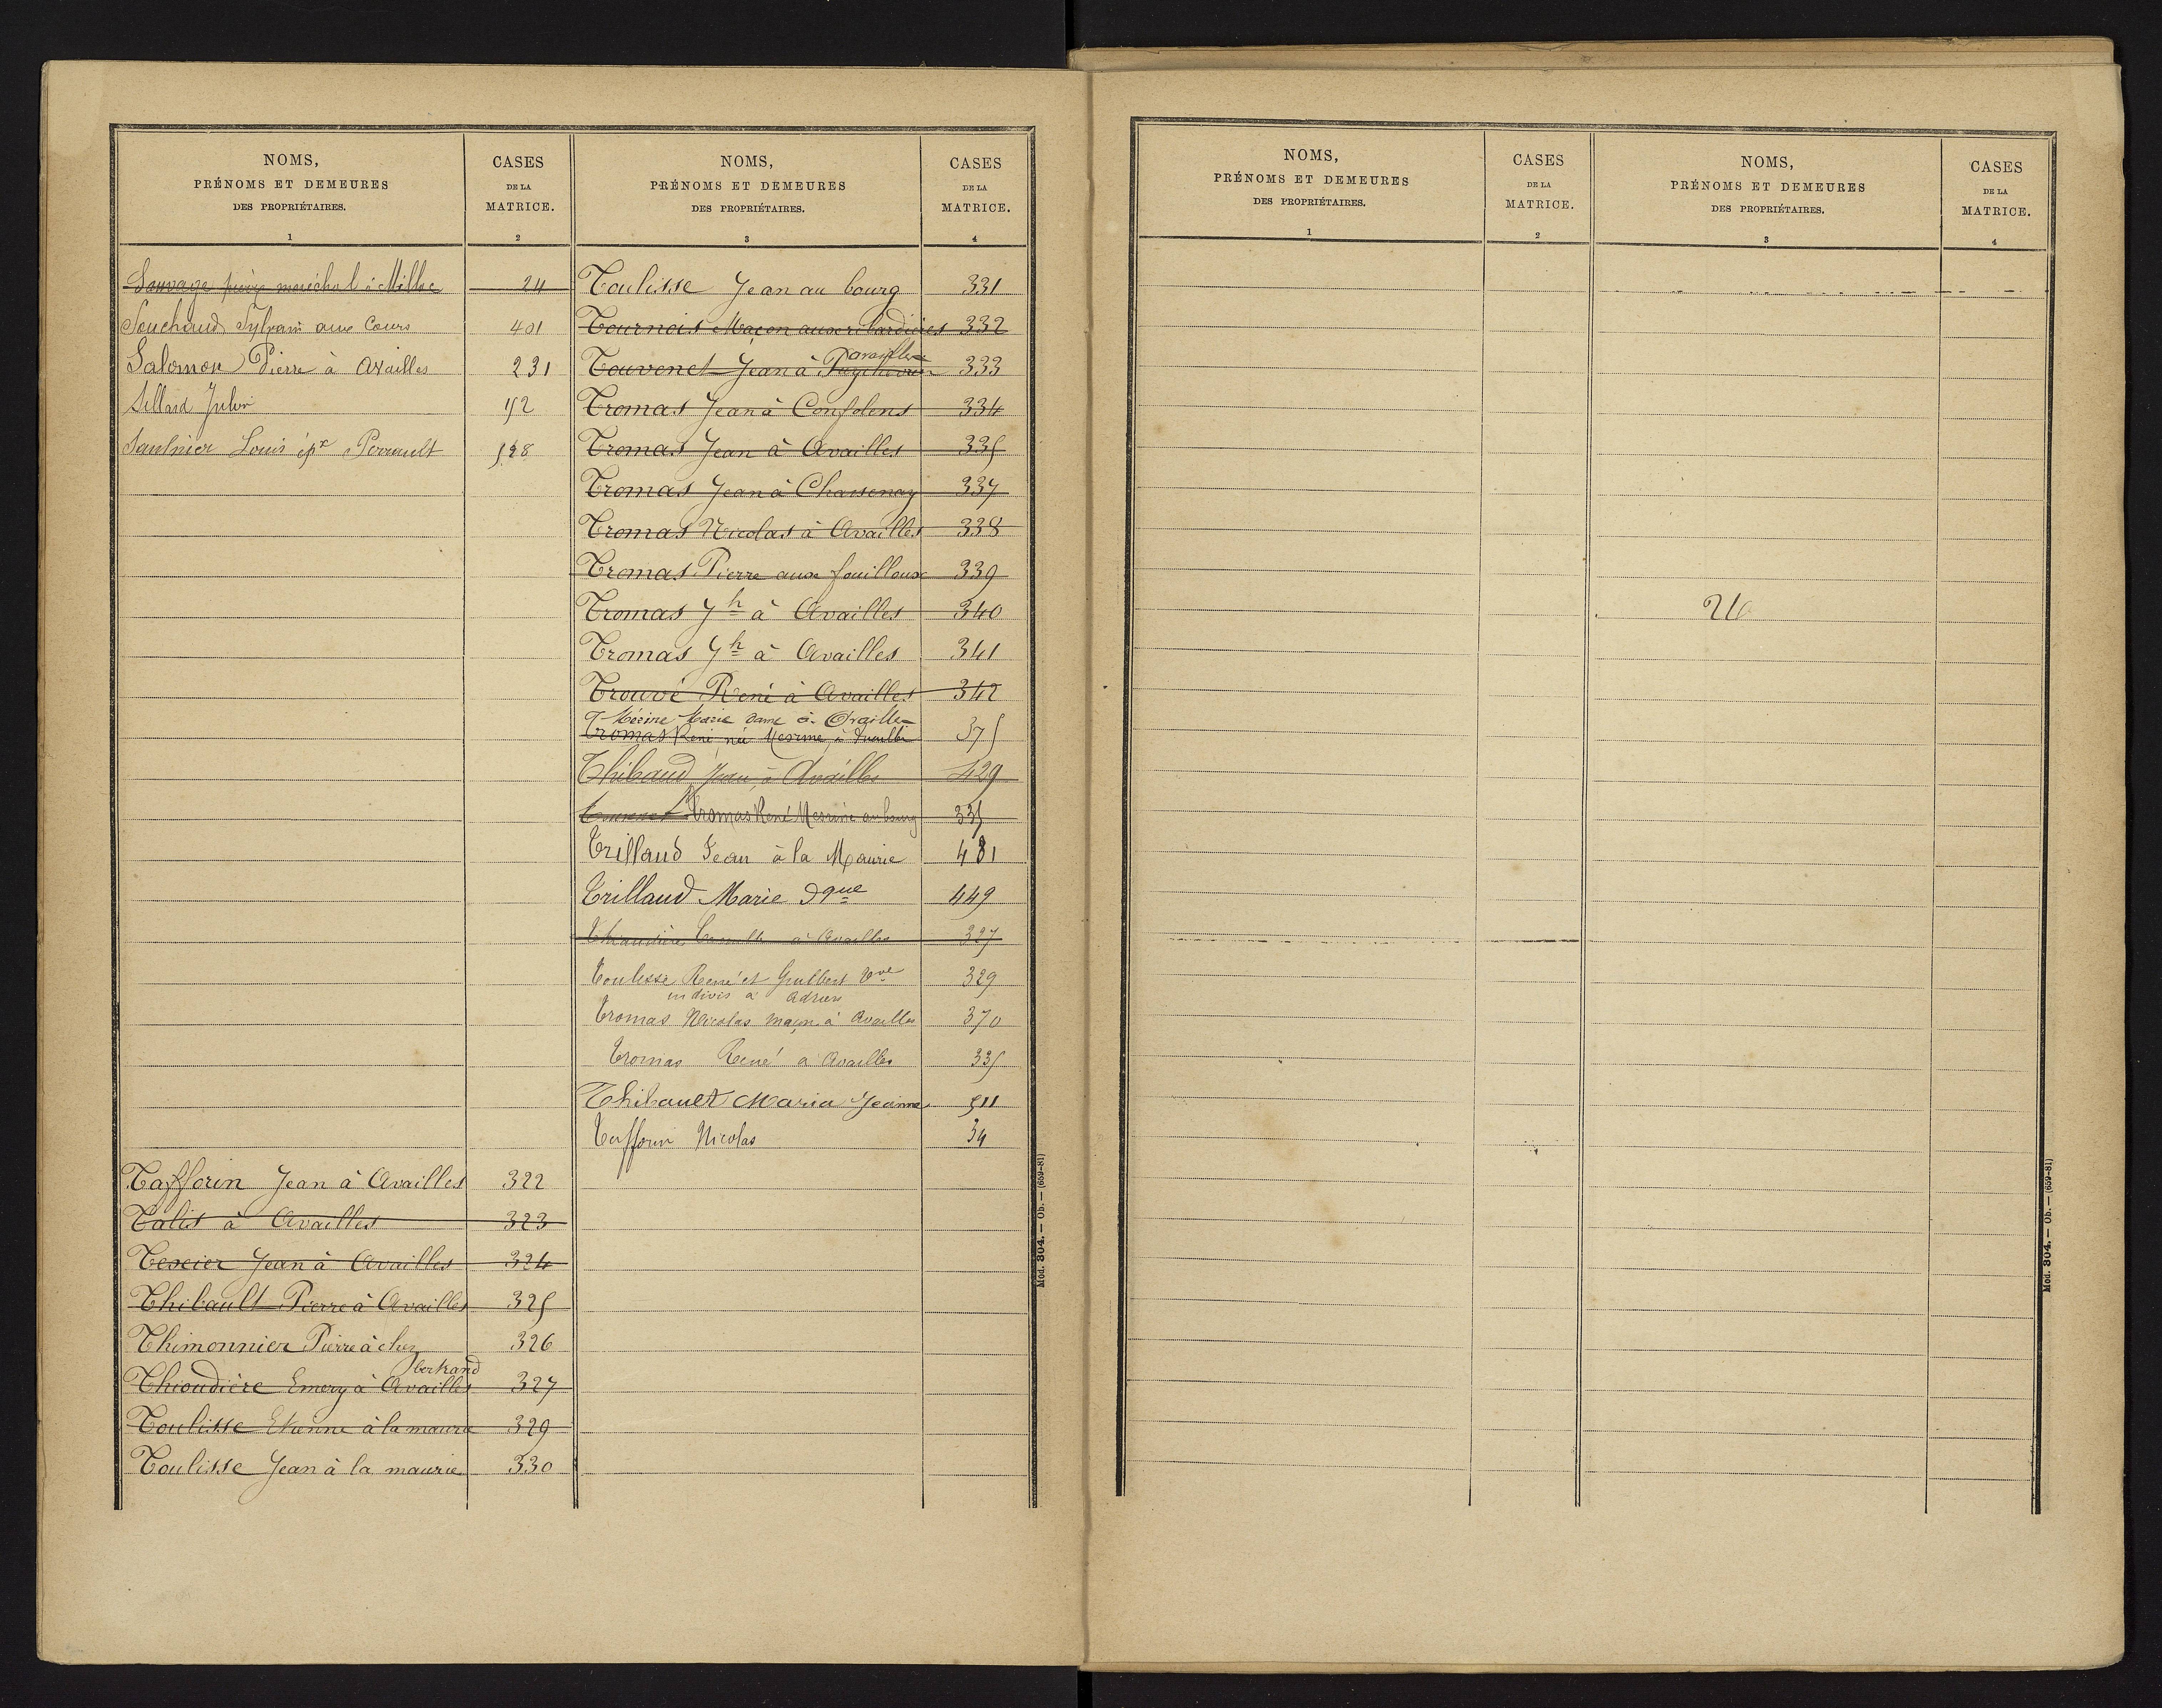 NOMS,
PRÉNOMS ET DEMEURES
DES PROPRIÉTAIRES.
1
CASES
DE LA
MATRICE.
2
Sauvage maréchal à Millac 24
Souchaud Sylvain aux Cours 401
Salomon Pierre à Availles 231
Sillard Jules 152
Saulnier Louis épx Perrault 528
Tafforin Jean à Availles 322
Talis à Availles 323
Texcier Jean à Availles 324
Thibault Pierre à Availles 325
Thimonnier Pierre à chez 326
bertrand
Thioudière Emery à Availles 327
Toulisse Etienne à la maurie 329
Toulisse Jean à la maurie 330
NOMS,
PRÉNOMS ET DEMEURES
DES PROPRIÉTAIRES.
3
CASES
DE LA
MATRICE.
4
Toulisse Jean au bourg 331
Tournois Maçon aux ribardières 332
availles
Touvenet Jean à Puychevrier 333
Tromas Jean à Confolens 334
Tromas Jean à Availles 335
Tromas Jean à Chassenay 337
Tromas Nicolas à Availles 338
Tromas Pierre aux fouilloux 339
Tromas Jh à Availles 340
Tromas Jh à Availles 341
Trouvé René à Availles 342
Mérine Marie dame à Availles
Tromas René née Mesrine à Availles 375
Thibaud Jean à Availles 429
Tromas René Mesrine au bourg 335
Trillaud Jean à la Maurie 481
Trillaud Marie dque 449
à Availles 327
Toulisse René et Guilbert Vve 329
indivis à Adrien
Tromas Nicolas maçon à Availles 370
Tromas René à Availles 335
Thibault Maria Jeanne 511
Tafforin Nicolas 34
Mod. 304. — Ob. — (659-81)
NOMS,
PRÉNOMS ET DEMEURES
DES PROPRIÉTAIRES.
1
CASES
DE LA
MATRICE.
2
NOMS,
PRÉNOMS ET DEMEURES
DES PROPRIÉTAIRES.
3
CASES
DE LA
MATRICE.
4
26
Mod. 304. — Ob. — (659-81)